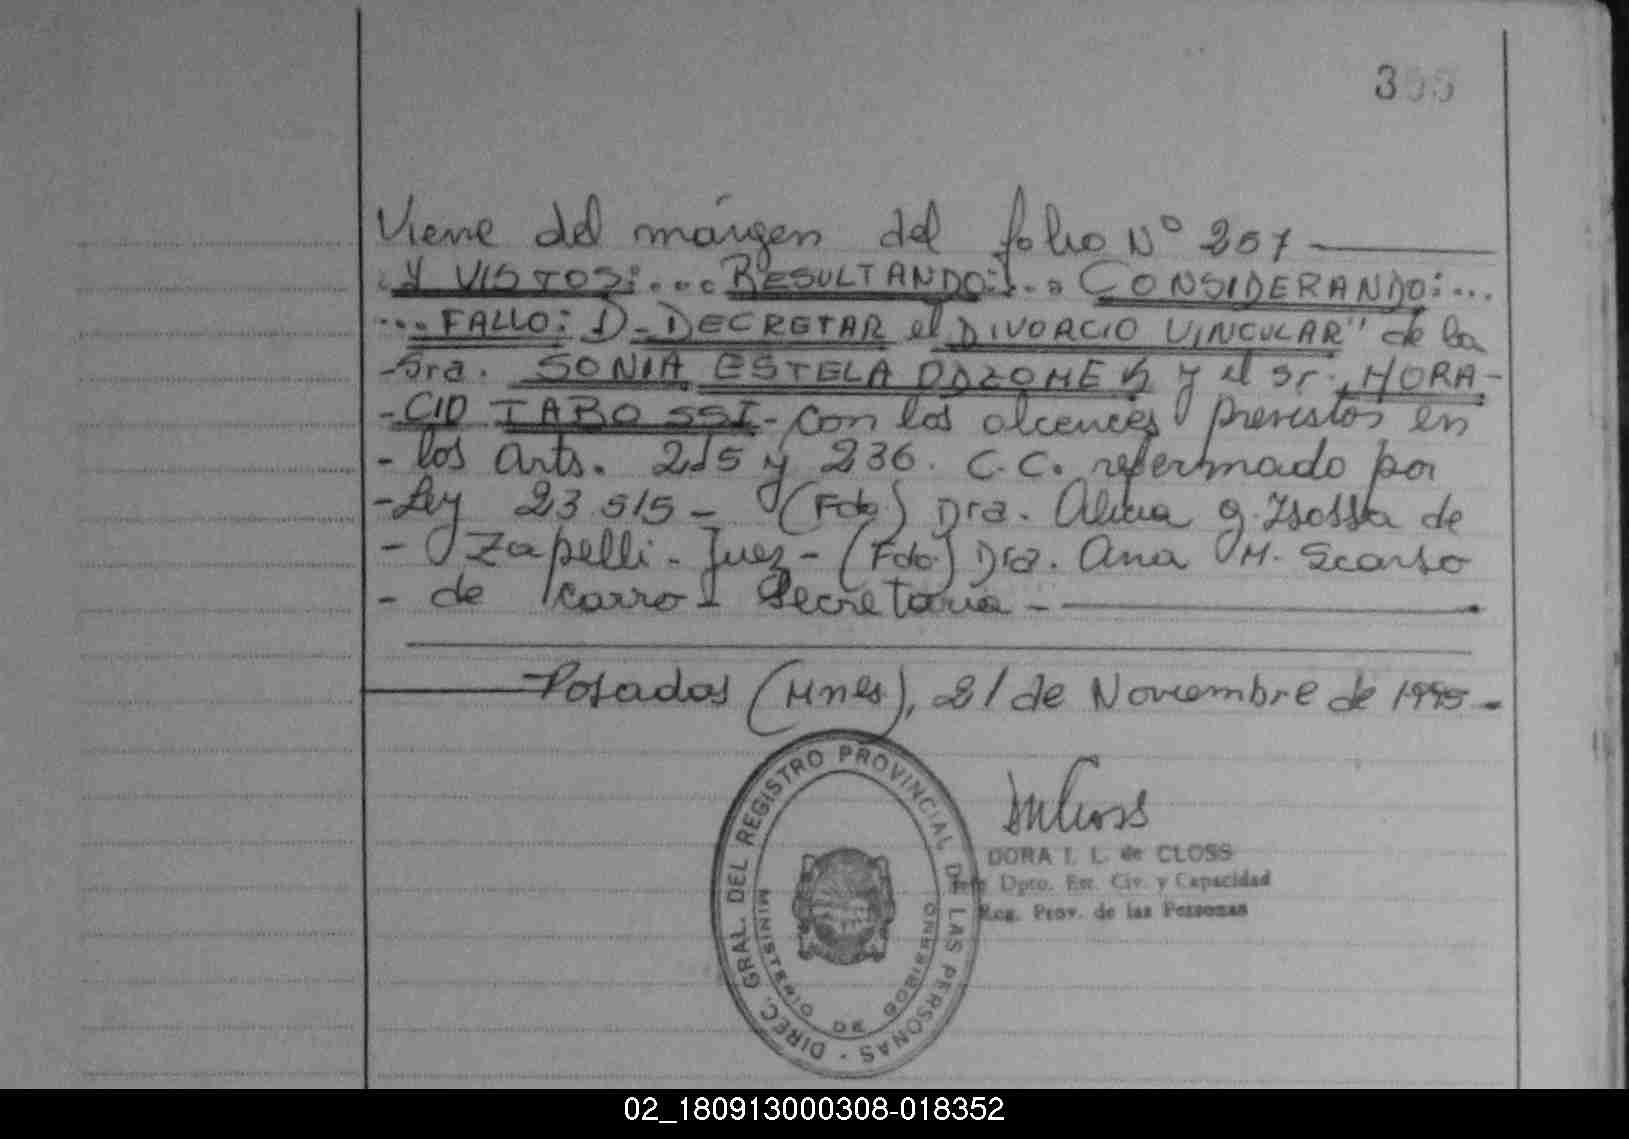 355
Viene del márgen del folio Nº 257
Y VISTOS:... RESULTANDO:... CONSIDERANDO:...
...FALLO: 1)-DECRETAR el DIVORCIO VINCULAR" de la
-Sra. SONIA ESTELA y el Sr. HORA-
-CIO TABOSSI- con los alcences previstos en
- los arts. 215 y 236. C.C. refermado por
-Ley 23515- (Fdo) Dra. Alicia G. de
- Zapelli - Juez - (Fdo.) Dra. Ana M.
- de Icarro - Secretaria -
Posadas (Mnes), 21 de Noviembre de 1995-
DIREC. GRAL. DEL REGISTRO PROVINCIAL DE LAS PERSONAS -
MINISTERIO DE GOBIERNO
DORA I. L. de CLOSS
Jefe Dpto. Est. Civ. y Capacidad
Reg. Prov. de las Personas
02_180913000308-018352